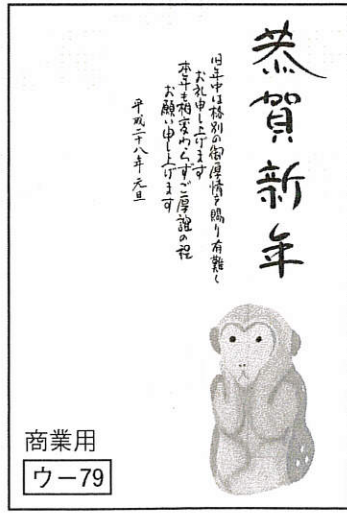 恭賀新年
旧年中は格別の御厚情を賜り有難く
お礼申し上げます
本年も相変わらずご厚誼の程
お願い申し上げます
平成二十八年 元旦
商業用
ウー79